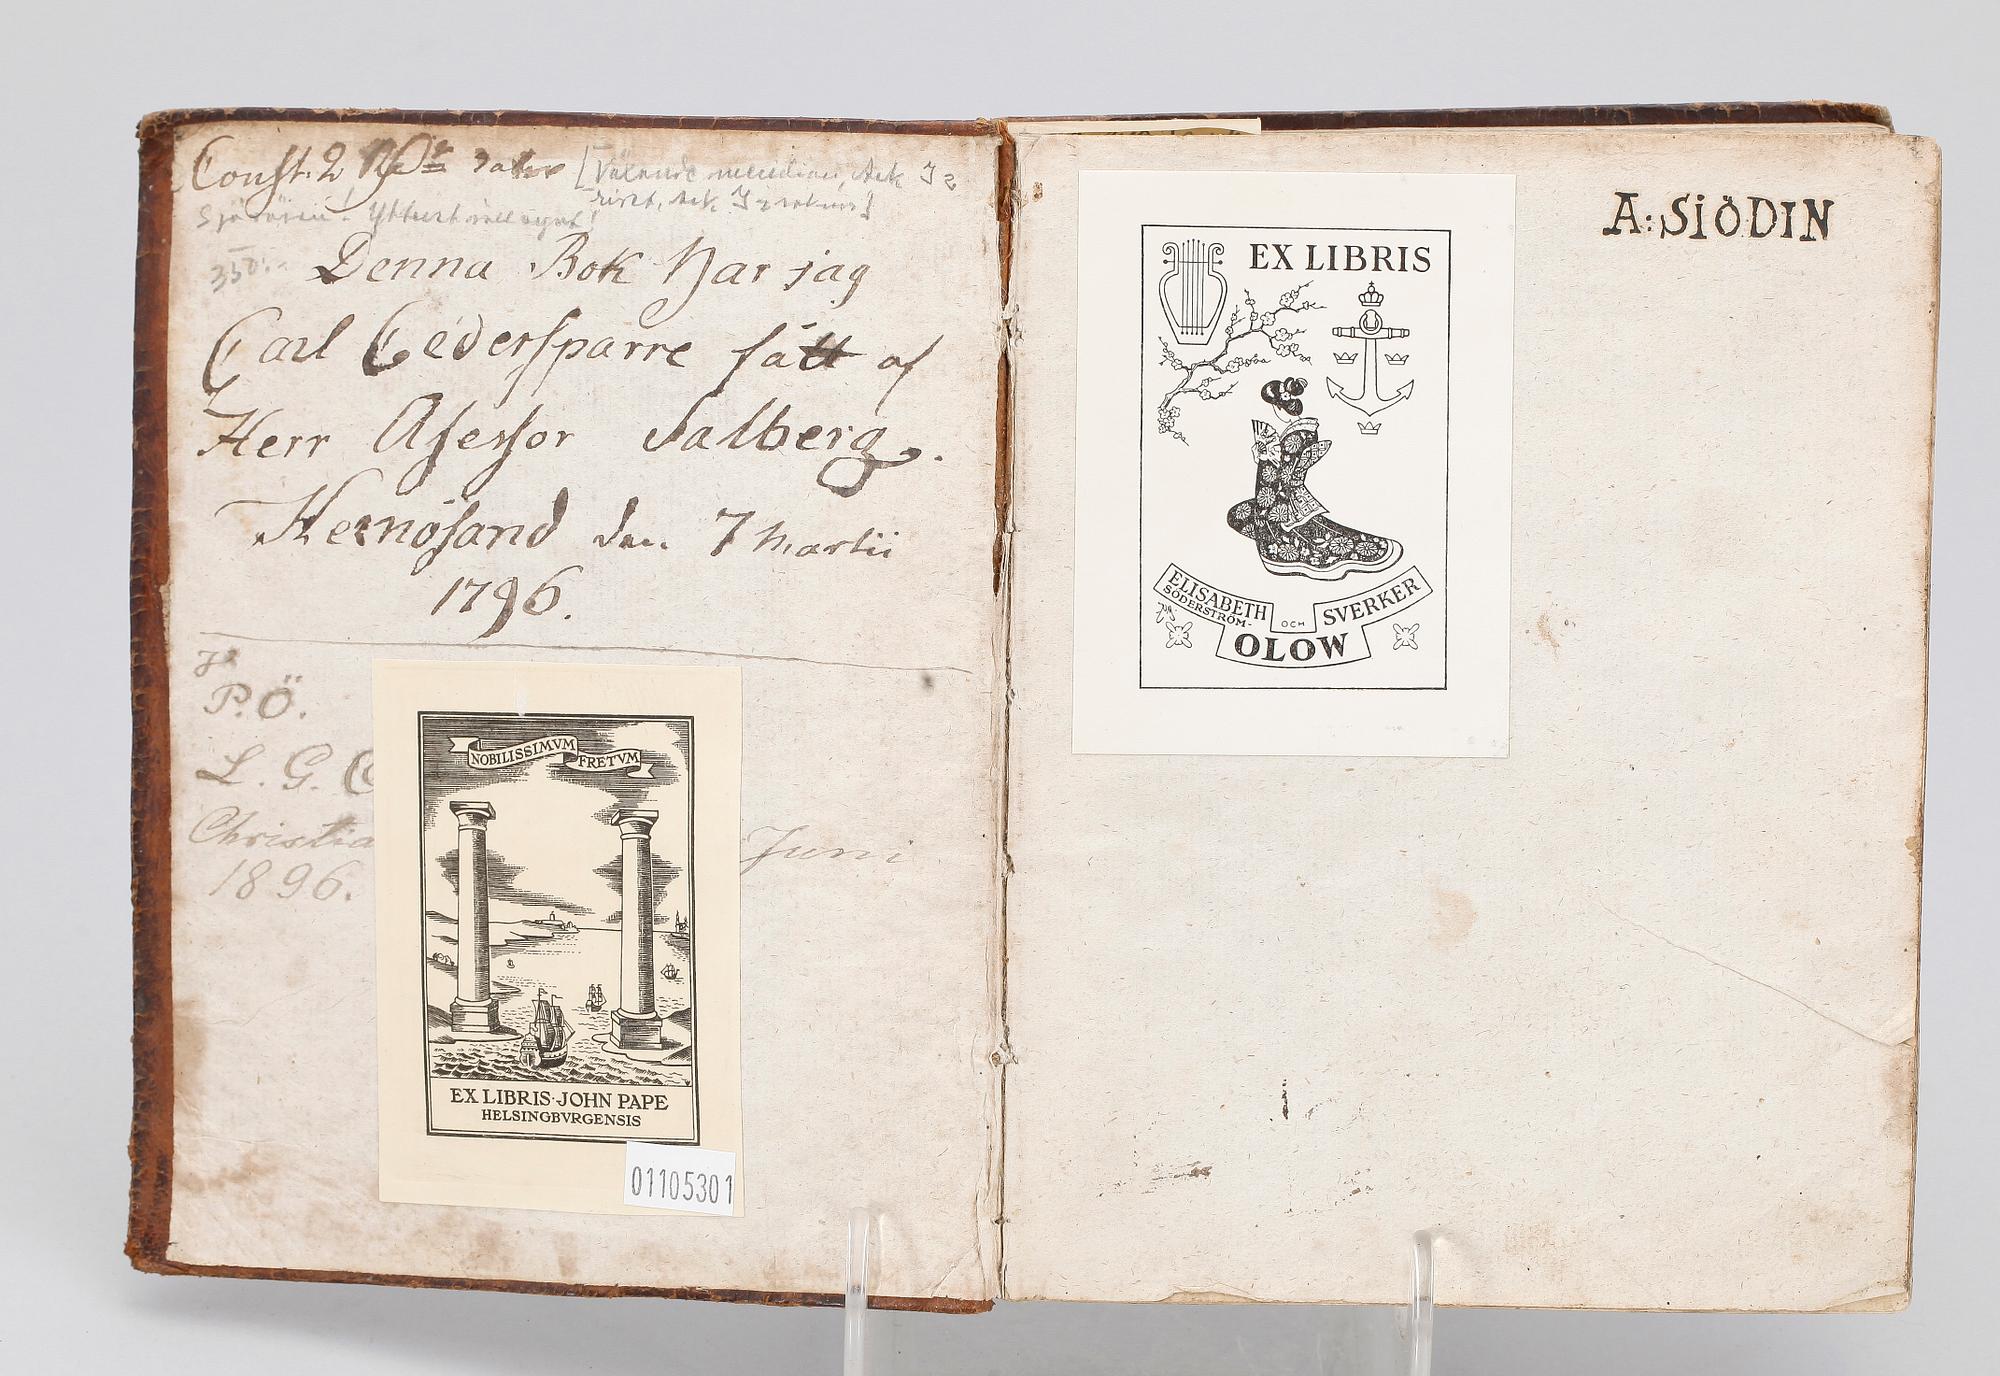 Const. 2
350:-
Denna Bok Har jag
Carl Cedersparre fått af
Herr Asessor Salberg.
Hernösand den 7 Martii
1796.
P.Ö.
L. G. C
Christia Juni
1896.
NOBILISSIMVM FRETVM
EX LIBRIS·JOHN PAPE
HELSINGBVRGENSIS
01105301
EX LIBRIS
ELISABETH
SÖDERSTRÖM-
OCH
SVERKER
OLOW
A: SIÖDIN